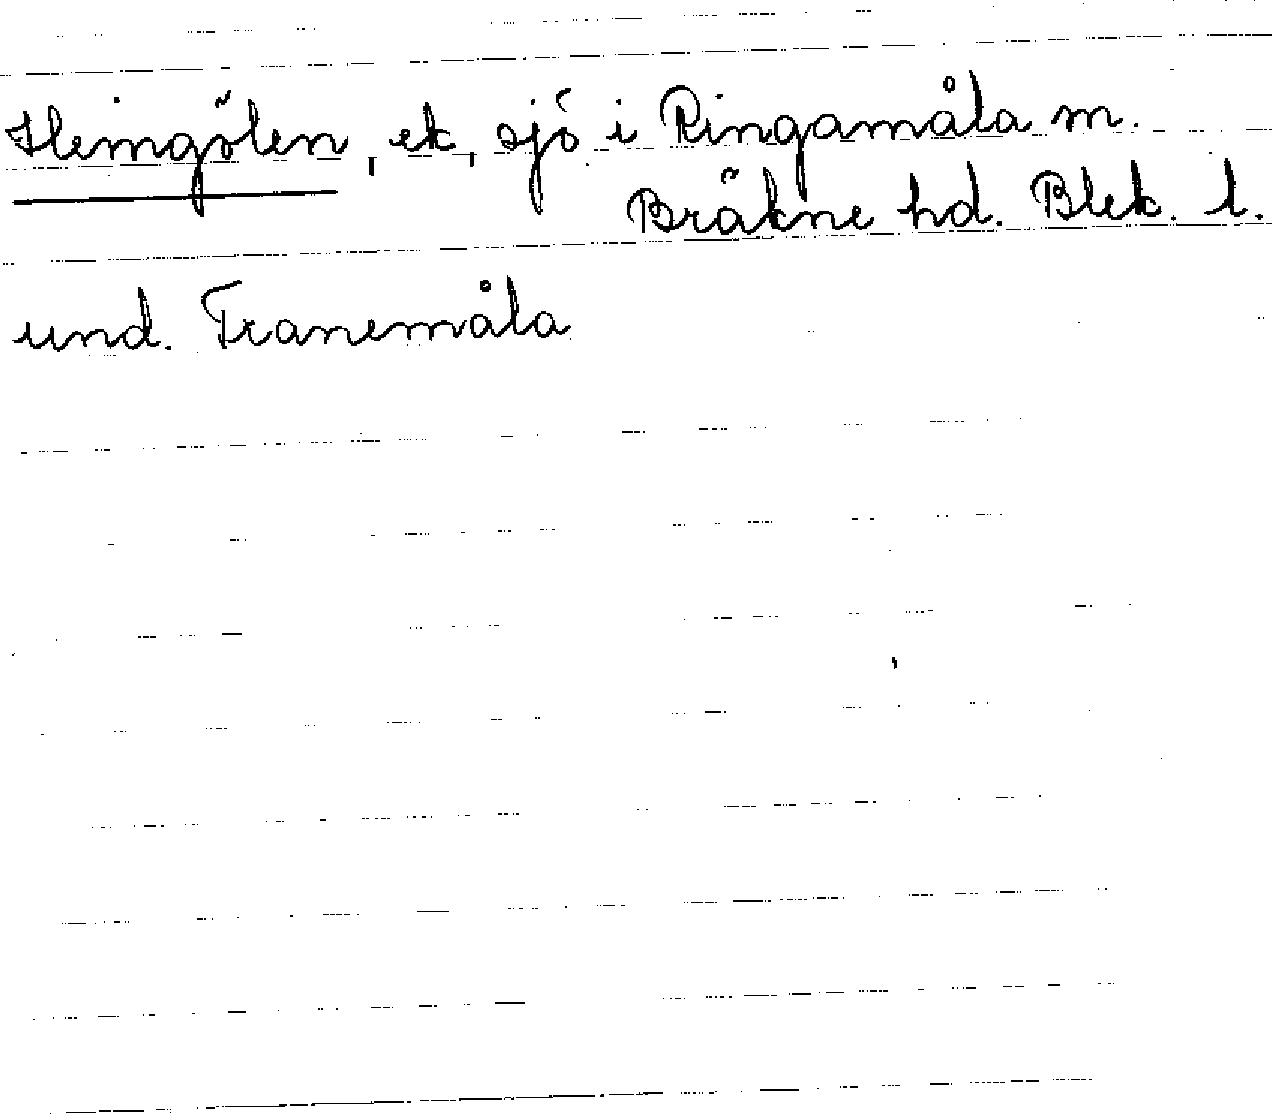 Hemgölen, ek, sjö i Ringamåla m.
Bräkne hd. Blek. l.
und. Tranemåla